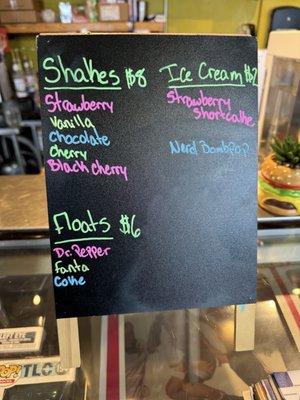 Shakes $8
Strawberry
Vanilla
Chocolate
Cherry
Black cherry
Floats $6
Dr. Pepper
Fanta
Coke
Ice Cream $2
Strawberry
Shortcake
Nerd Bomb pop
TLC